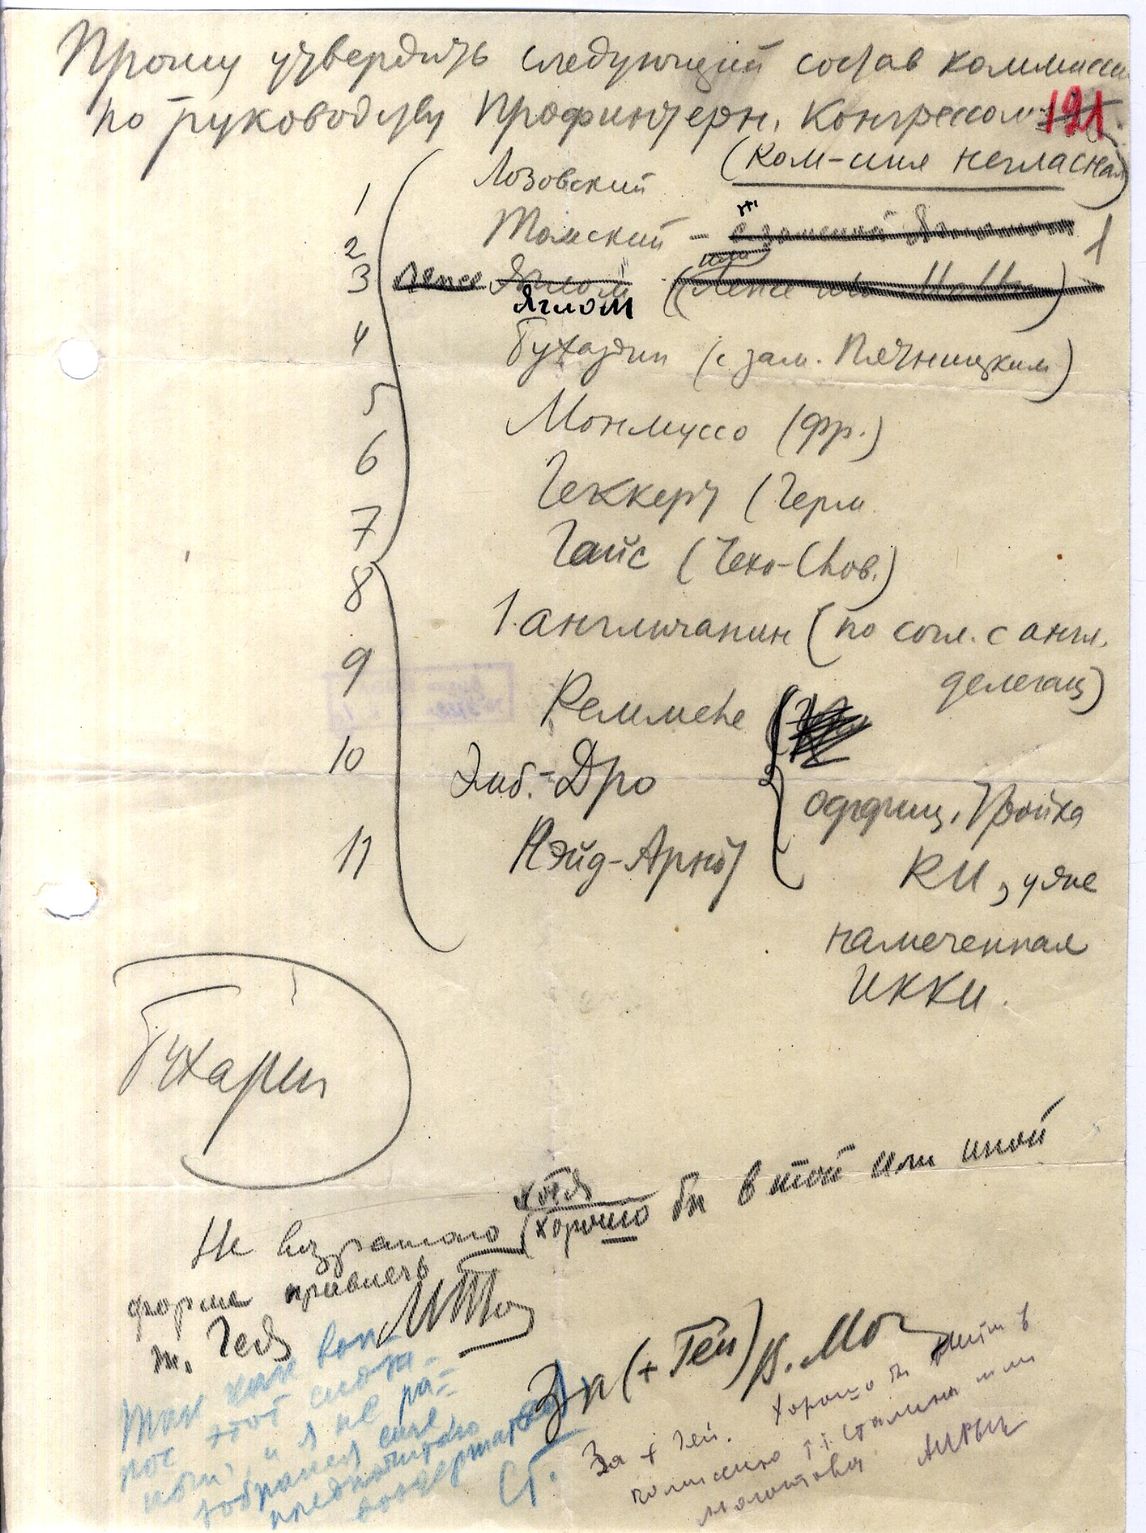 Прошу утвердить следующий состав комиссии
по руководству Профинтерн. Конгрессом
121
(ком-сия негласная)
1 Лозовский
2 Томский – с заменой Ягломом 1
3 Лепсе Яглом (Лепсе или
Яглом
4 Бухарин (с зам. Пятницким)
5 Монмуссо (фр.)
6 Геккерт (Герм
7 Гайс (Чехо-Слов.)
8 1 англичанин (по согл. с англ.
делегац)
9 Реммеле
10 Эмб.-Дро
оффиц. тройка
11 Пэйд-Арнот
КИ, уже
намеченная
ИККИ.
Бухарин
хотя
Не возражаю (хорошо бы в той или иной
форме привлечь
т. Гея МТом
Так как воп-
рос этот сложн
и я не ра-
зобрался еще
предпочитаю
воздержаться
Ст.
За (+ Гей) В. Мол
За + Гей. Хорошо бы в
комиссию т.т. Сталина или
Молотова